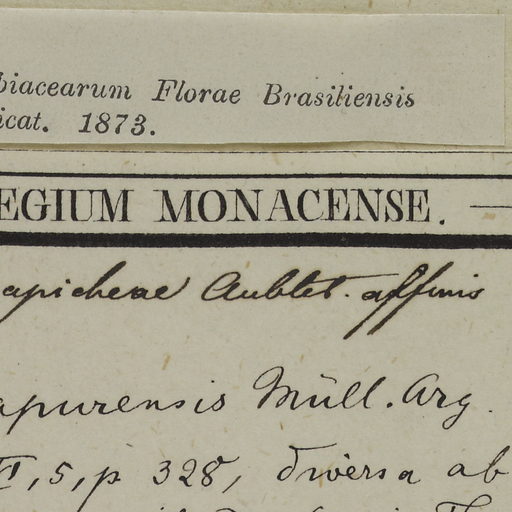 biacearum Florae Brasiliensis
icat. 1873.
EGIUM MONACENSE.
apicheae Aublet. affinis
apurensis Müll. Arg.
II, 5, p 328, diversa ab